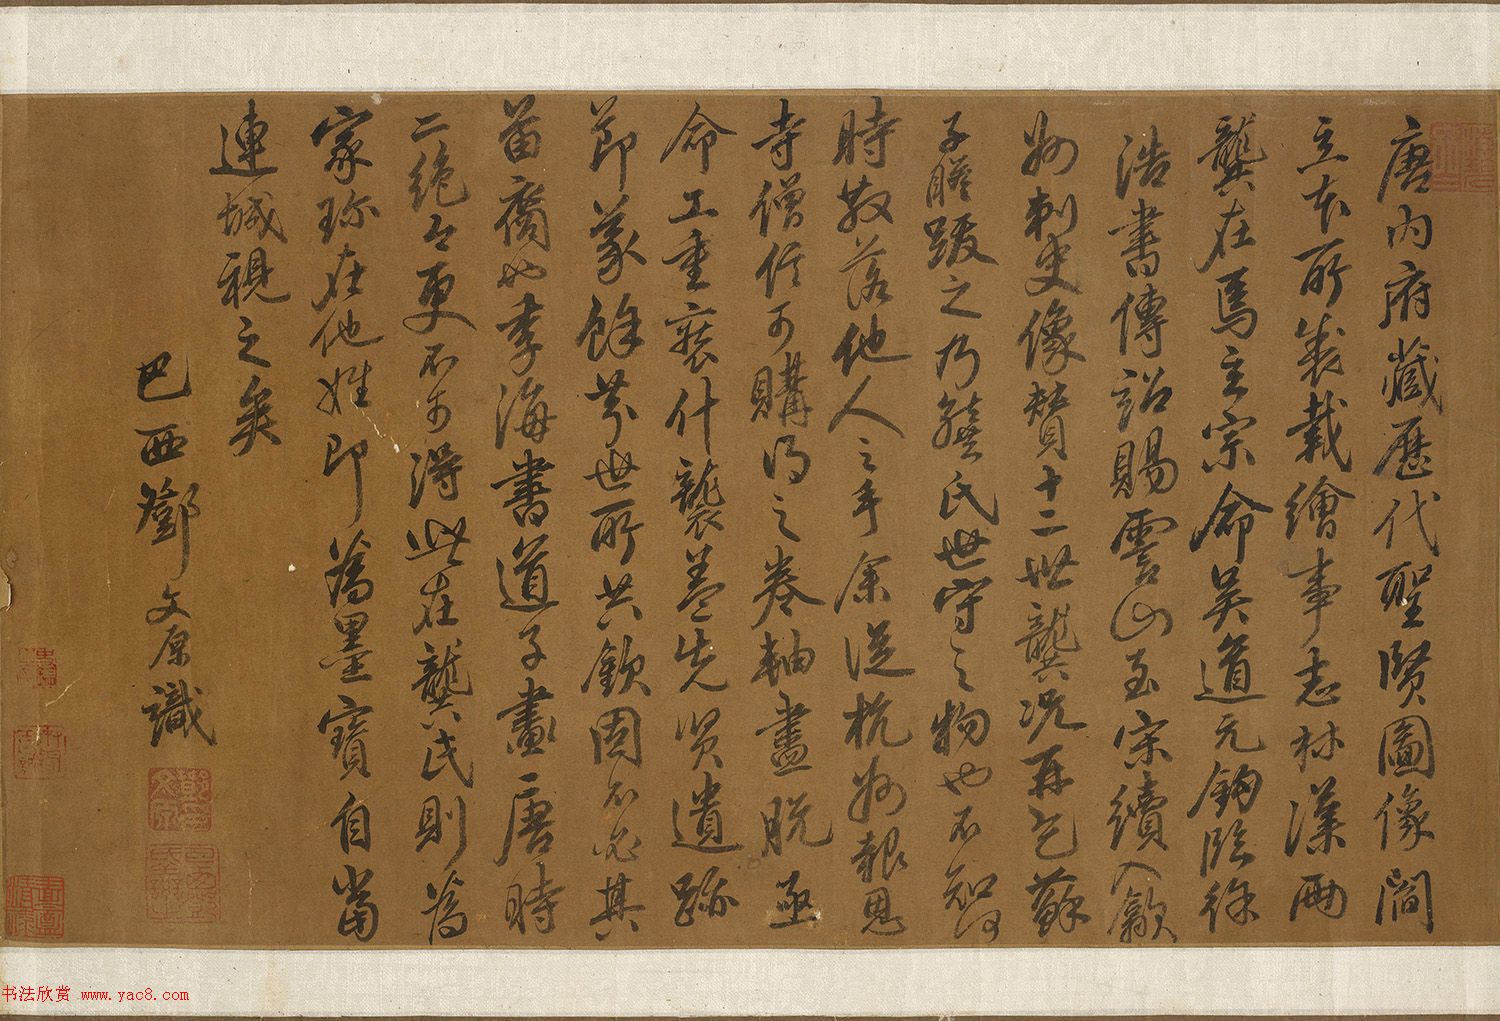 唐内府藏歷代聖賢圖像閻
立本所製載繪事志林漢兩
龔在焉玄宗命吳道元鉤臨徐
浩書傳詔賜雲山至宋續入歙
州刺史像贊十二世龔況再乞蘇
子瞻跋之乃龔氏世守之物也不知何
時散落他人之手余从杭州報恩
寺僧信可購得之卷軸盡脫亟
命工重裝什襲蓋先賢遺跡
節義餘芬世所共欽固不必其
苗裔也李海書道子畫唐時
二絕今更不可得此在龔氏則為
家珍在他姓即為墨寶自當
連城視之矣
巴西鄧文原識
书法欣赏 www.yac8.com